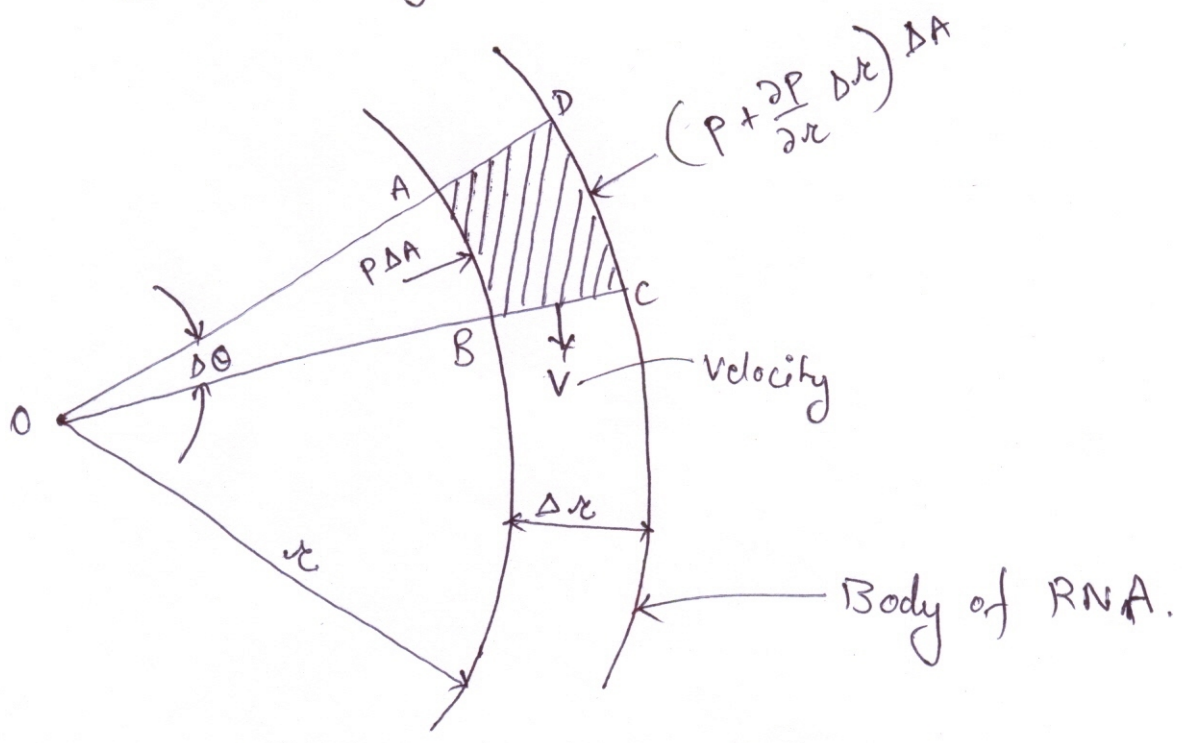 (P + ∂P/∂r Δr) ΔA
D
A
PΔA
C
B
Δθ
V
Velocity
O
Δr
r
Body of RNA.